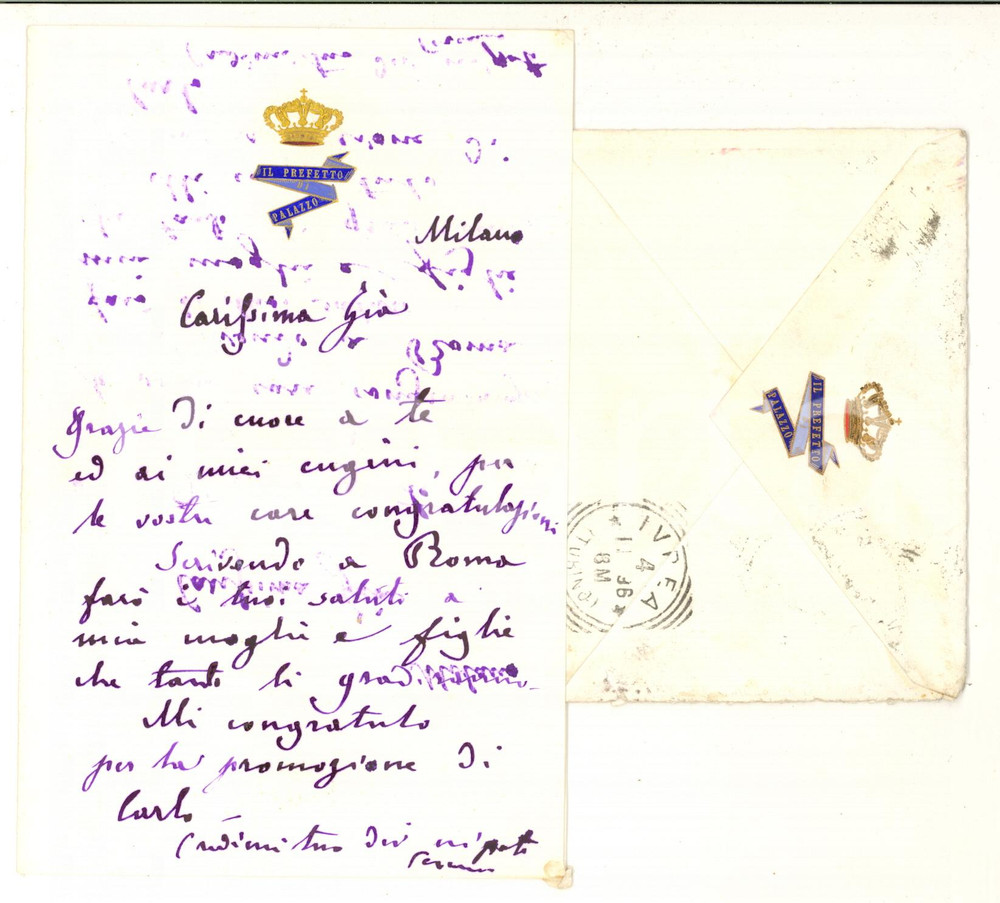 IL PREFETTO
DI
PALAZZO
Milano
Carissima Zia
Grazie di cuore a te
ed ai miei cugini, per
le vostre care congratulazioni
Scrivendo a Roma
farò i tuoi saluti a
mia moglie e figlie
che tanto li
Mi congratulo
per la promozione di
Carlo
Credimi tuo dev nipote
IL PREFETTO
DI
PALAZZO
IVREA
(TORINO)
11 4 96
8M